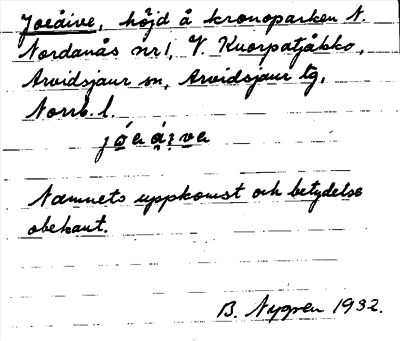 Joeåive, höjd å kronoparken N.
Nordanås nr 1, V. Kuorpatjåkko,
Arvidsjaur sn, Arvidsjaur tg,
Norrb. l.
Namnets uppkomst och betydelse
obekant.
B. Nygren 1932.